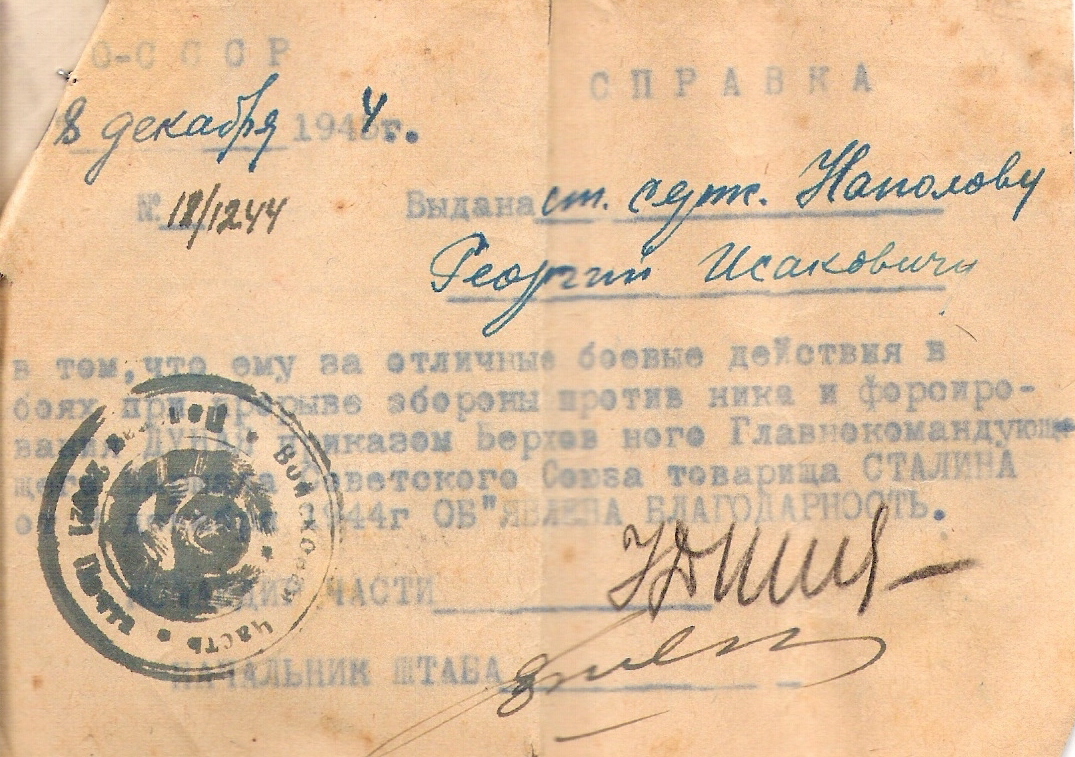 О-СССР
СПРАВКА
8 декабря 1944г.
№ 18/1244
Выдана ст. серж. Наполову
Георгий Исаковичу
в том, что ему за отличные боевые действия в
боях при прорыве обороны против ника и форсиро-
вания ДУНАЯ приказом Верхов ного Главнокомандующе-
щего Маршала Советского Союза товарища СТАЛИНА
декабря 1944г ОБ"ЯВЛЕНА БЛАГОДАРНОСТЬ.
КОМАНДИР ЧАСТИ
НАЧАЛЬНИК ШТАБА
Войсковая часть * Полевая почта